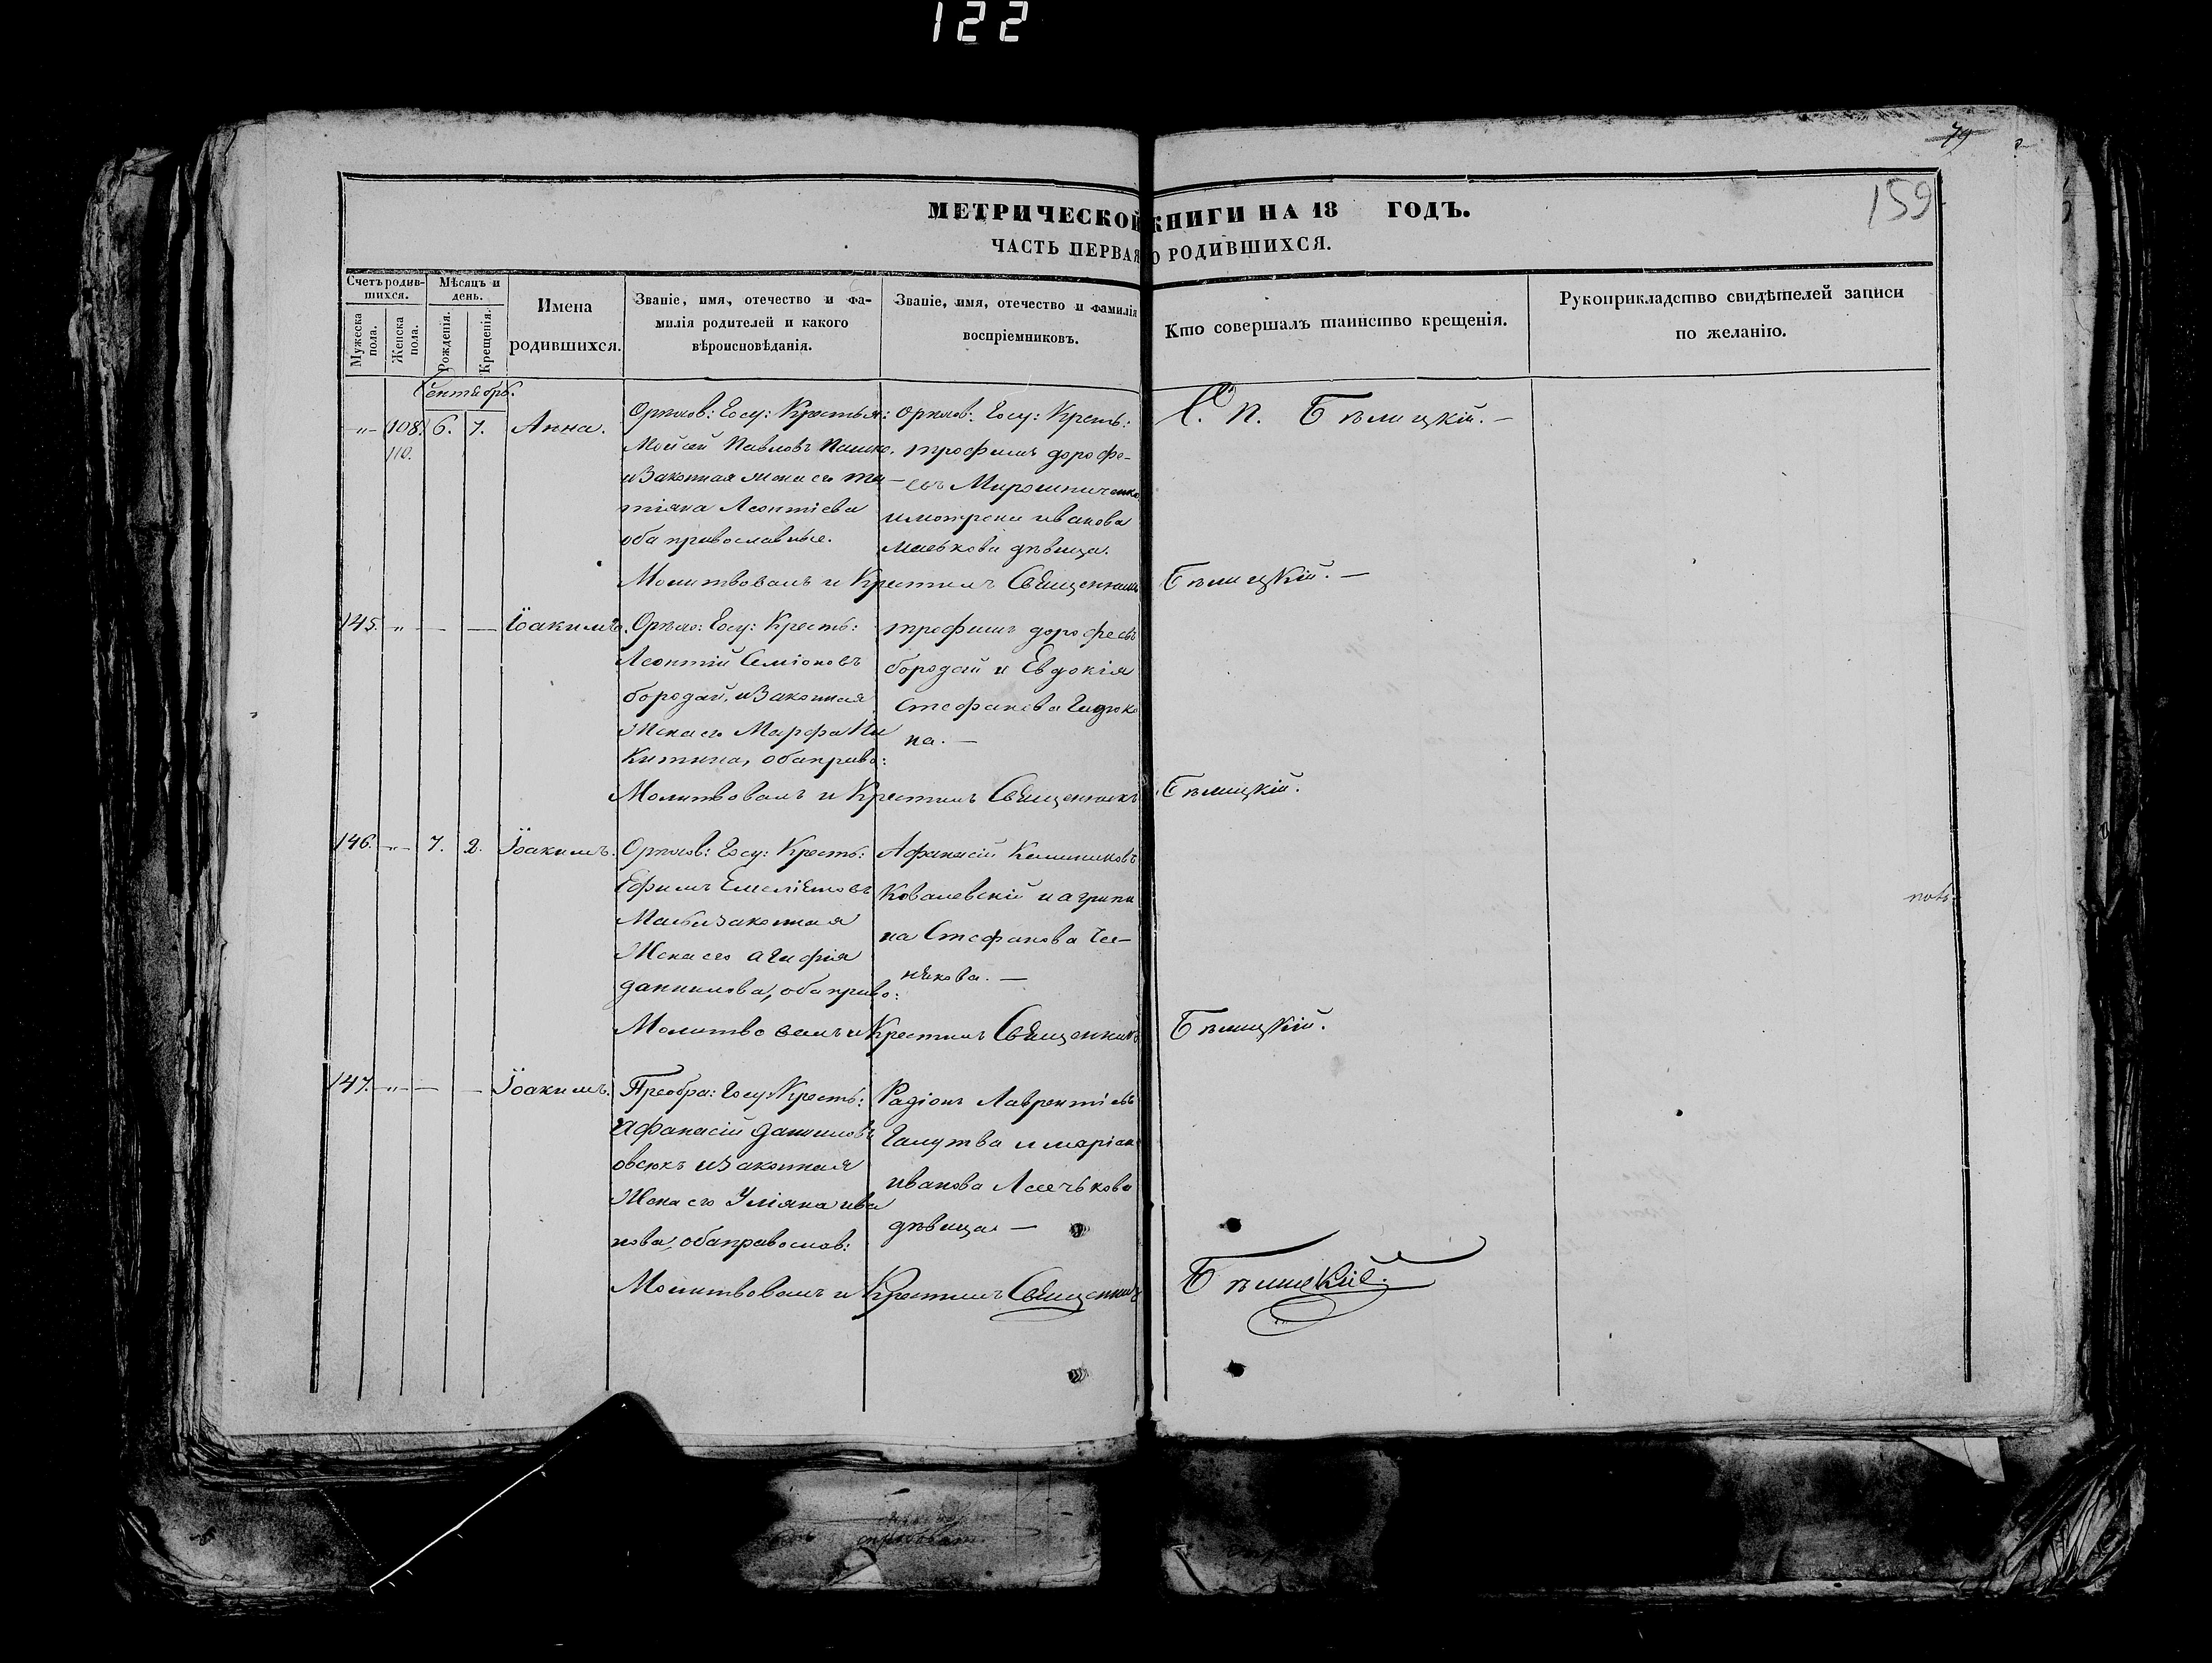 122
79
159
МЕТРИЧЕСКОЙ КНИГИ НА 18 ГОДЪ.
ЧАСТЬ ПЕРВАЯ О РОДИВШИХСЯ.
Счетъ родив-
шихся.
Мужеска пола.
Женска пола.
Мѣсяцъ и
день.
Рожденія.
Крещенія.
Имена
родившихся.
Званіе, имя, отечество и фа-
милія родителей и какого
вѣроисповѣданія.
Званіе, имя, отечество и фамилія
воспріемниковъ.
Кто совершалъ таинство крещенія.
Рукоприкладство свидѣтелей записи
по желанію.
Сентябрь.
-"- 108. 6. 7. Анна.
110.
Орѣхов: Госу: Крестья:
Мойсей Павловъ Пашко.
и Законная жена его Та-
тіяна Леонтіева
оба православные.
Орѣхов: Госу: Кресть:
трофимъ дорофе-
евъ Мирошниченко
и мотрена иванова
дѣвица.
С. П. Бѣлицкій. -
Молитвовалъ и Крестилъ Священникъ Бѣлицкій. -
145. " - - Іоакимъ.
Орѣхо: Госу: Кресть:
Леонтій Семіоновъ
бородай, и Законная
Жена его Марфа Ни
китина, оба право:
трофимъ дорофеевъ
бородай и Евдокія
Стефанова
на. -
Молитвовалъ и Крестилъ Священникъ Бѣлицкій.
146. -"- 7. 2. Іоакимъ.
Орѣхов: Госу: Кресть:
Ефимъ
и законная
Жена его агафія
даниилова, оба право:
Афанасій
Ковалевскій и агрипи
на Стефанова
Молитвовалъ и Крестилъ Священникъ Бѣлицкій.
147. -"- - - Іоакимъ.
Преобра: Госу: Кресть:
Афанасій даниловъ
овсюкъ и Законная
Жена его Уліяна ива
нова, оба православ:
Радіонъ Лаврентіевъ
Галушва и маріан
иванова
дѣвица -
Молитвовалъ и Крестилъ Священникъ Бѣлицкій.